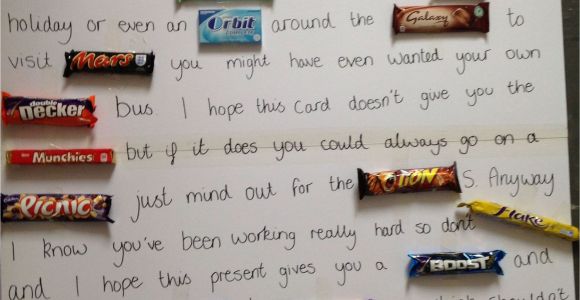 holiday or even an Orbit around the Galaxy to
visit Mars you might have even wanted your own
double Decker bus I hope this card doesn't give you the
Munchies but if it does you could always go on a
Picnic just mind out for the LION S. Anyway
I know you've been working really hard so don't Flake
and I hope this present gives you a BOOST and